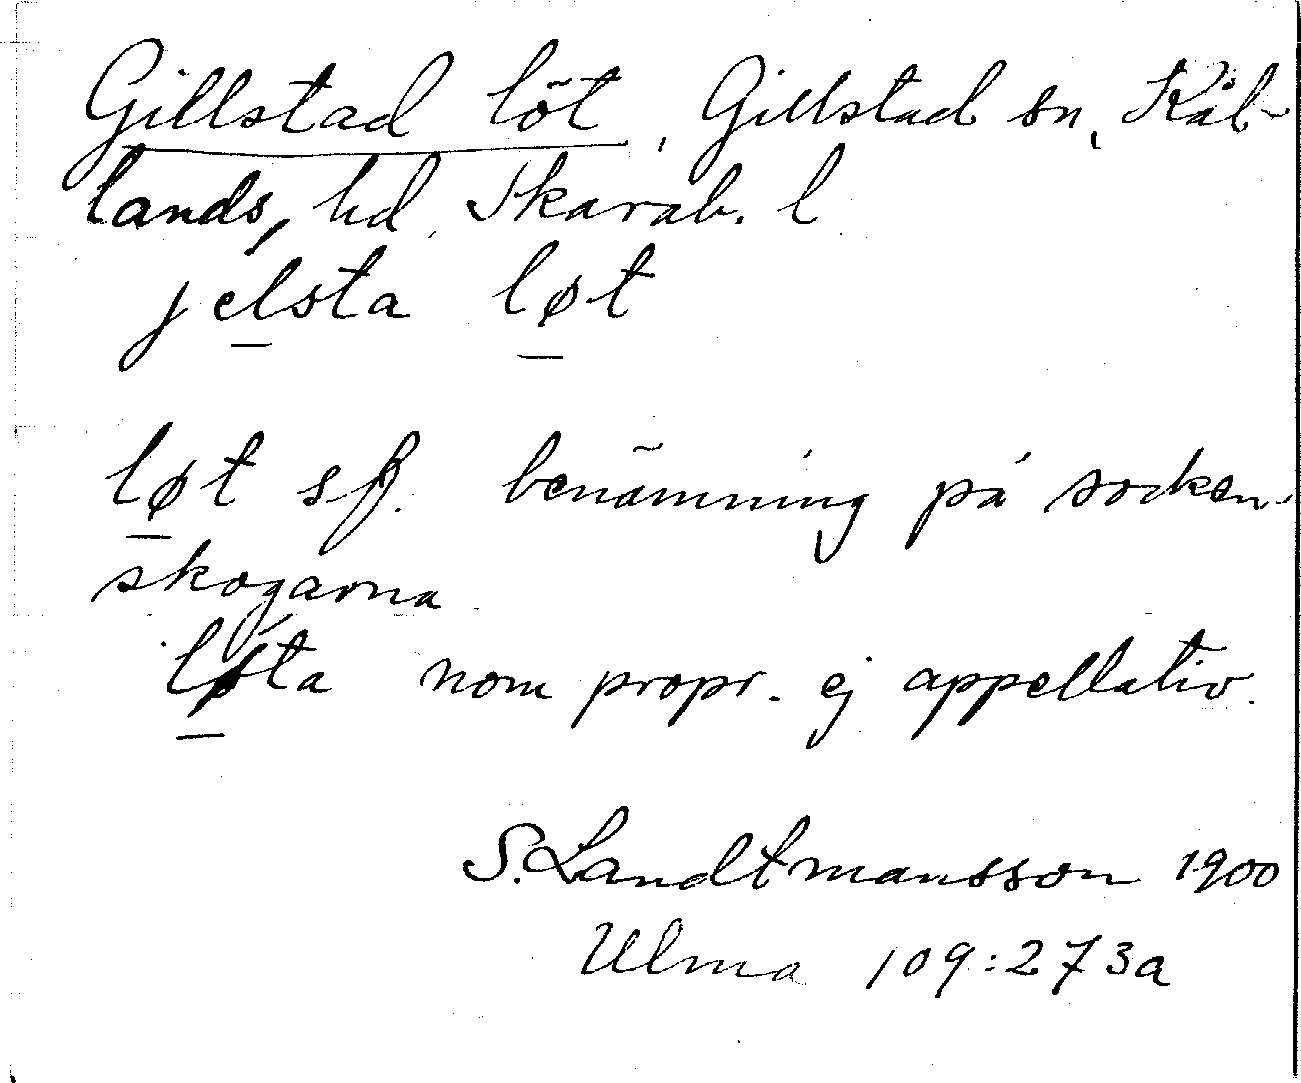 Gillstad löt, Gillstad sn, Kål-
lands, hd, Skarab. l
jelsta løt
løt sf. benämning på socken-
skogarna
løta nom propr. ej appellativ.
S. Landtmansson 1900
Ulma 109:273a